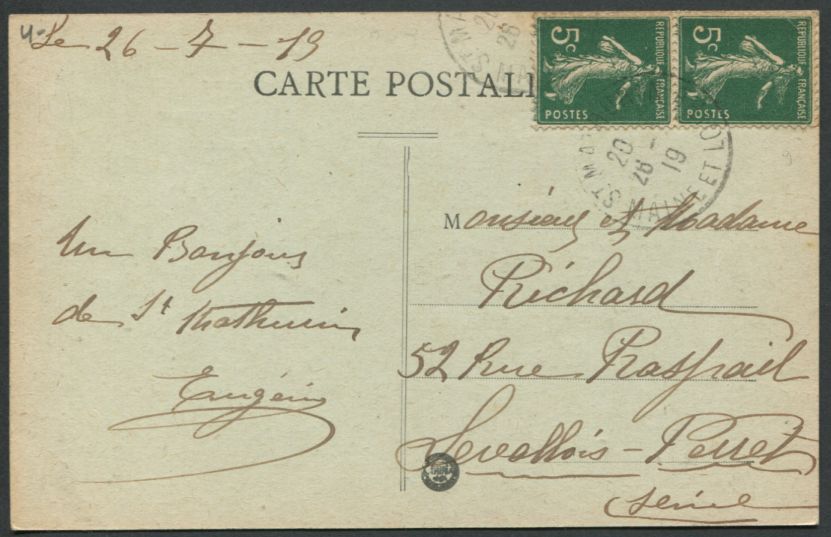 Le 26 - 7 - 19
CARTE POSTALE
5c
REPUBLIQUE FRANÇAISE
POSTES
5c
REPUBLIQUE FRANÇAISE
POSTES
ST MA
20
26
ST MA MAINE ET LOI
20 -
26 - 19
Un Bonjour
de St Mathurin
Eugénie
Monsieur et Madame
Richard
52 Rue Raspail
Levallois - Perret
Seine